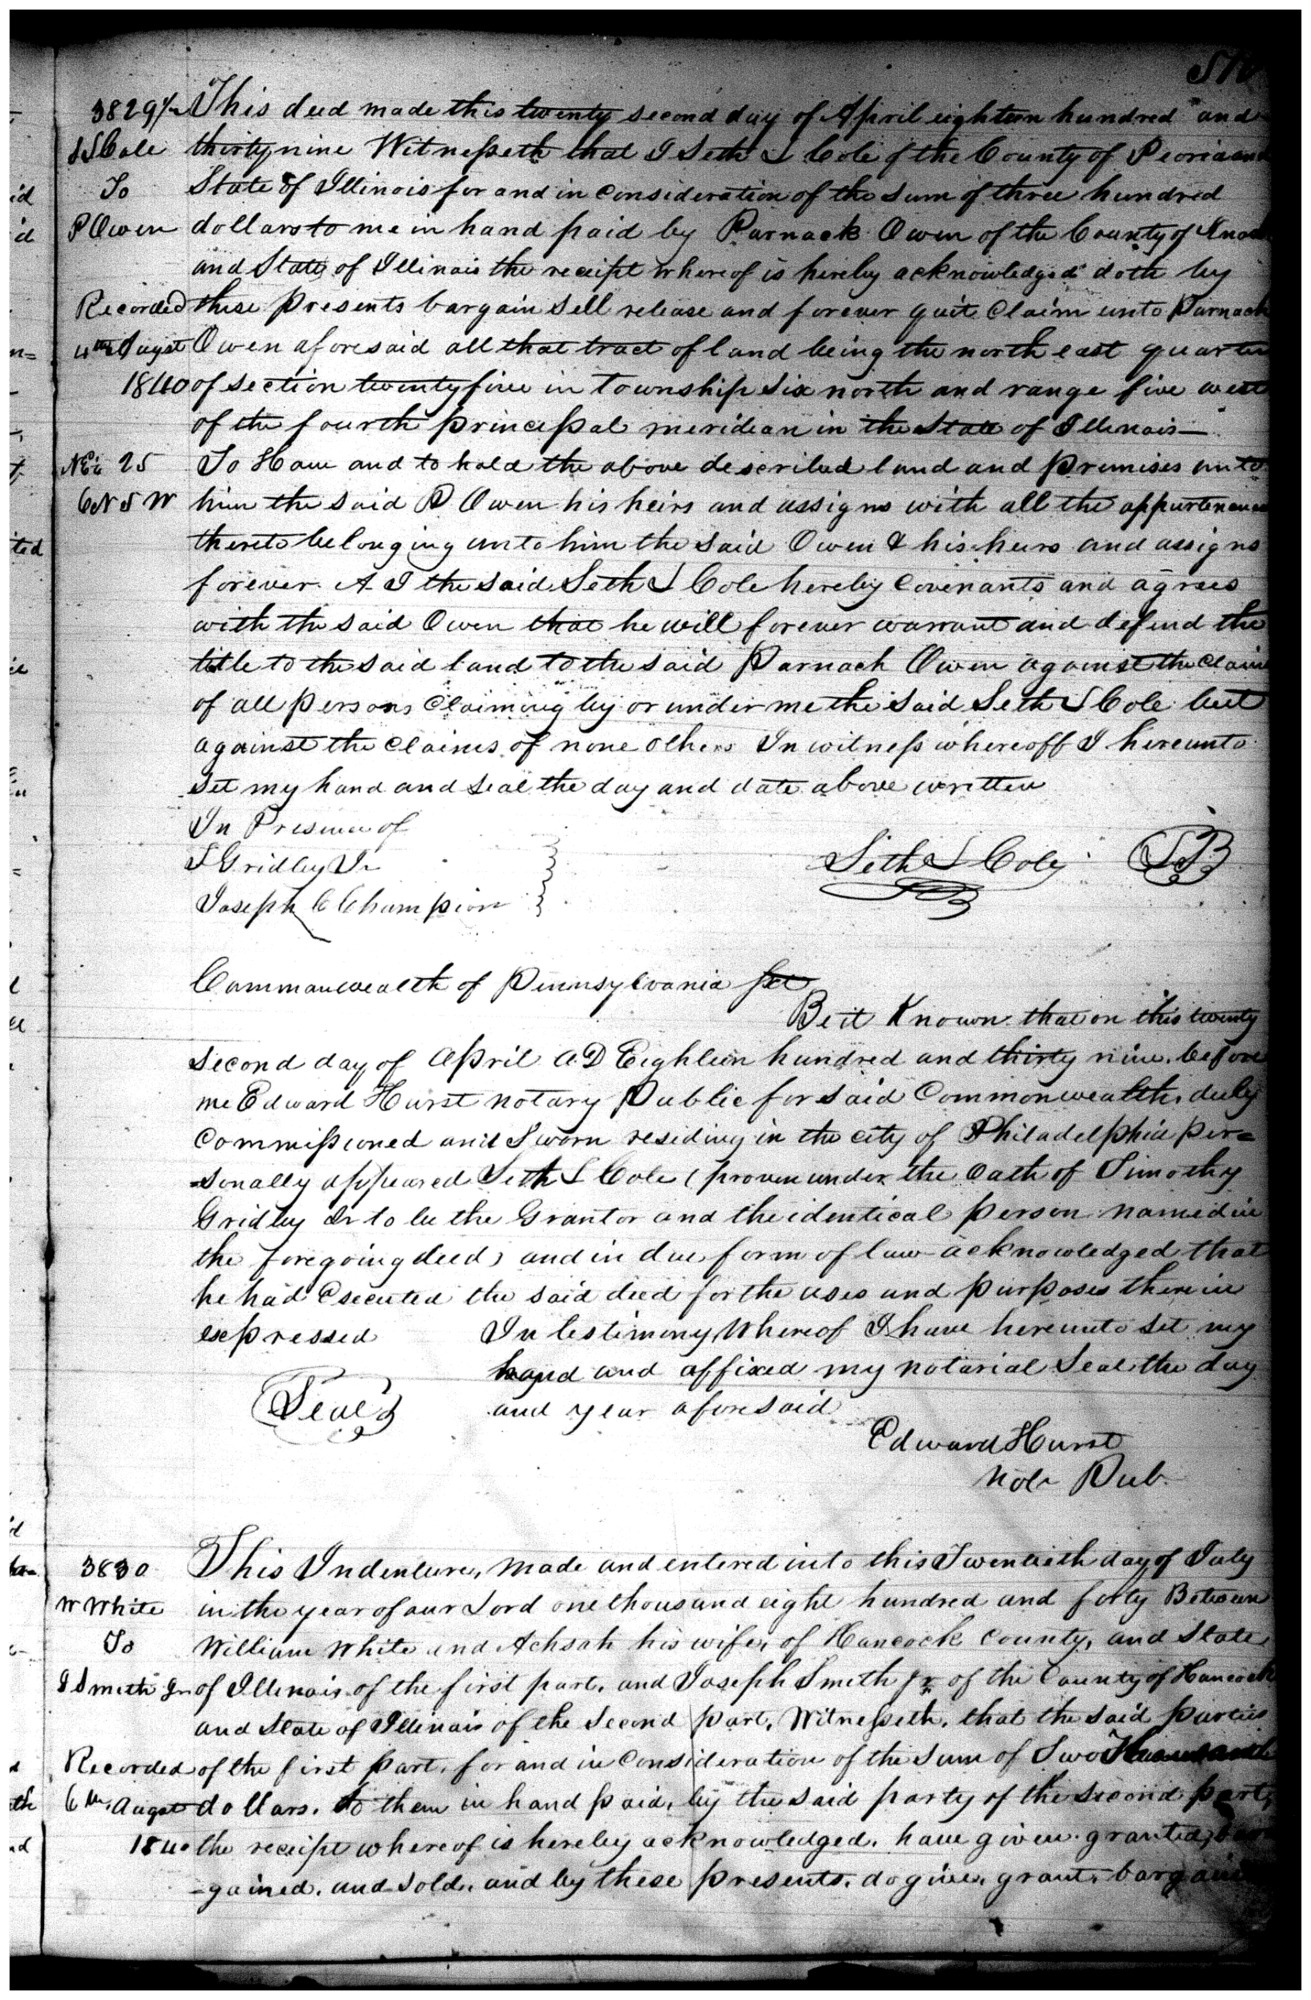 3829½ This deed made this twenty second day of April eighteen hundred and
S S Cole thirty nine Witnesseth that I Seth S Cole of the County of Peoria and
To State of Illinois for and in consideration of the sum of three hundred
P Owen dollars to me in hand paid by Parnack Owen of the County of Knox
and State of Illinois the receipt whereof is hereby acknowledged doth by
Recorded these presents bargain sell release and forever quit Claim unto Parnack
4th Augst Owen aforesaid all that tract of land being the north east quarter
1840 of section twenty five in township six north and range five west
of the fourth principal meridian in the State of Illinois—
NE¼ 25 To Have and to hold the above described land and premises unto
6N 5 W him the said P Owen his heirs and assigns with all the appurtenances
thereto belonging unto him the said Owen & his heirs and assigns
forever. A I the said Seth S Cole hereby Covenants and agrees
with the said Owen that he will forever warrant and defend the
title to the said land to the said Parnack Owen against the claim
of all persons Claiming by or under me the said Seth S Cole but
against the claims of none others In witness whereoff I hereunto
set my hand and seal the day and date above written
In Presence of
T Gridley Jr
Seth S Cole
Joseph C Champion
Commonwealth of Pennsylvania Sct
Be it Known that on this twenty
second day of April A.D Eighteen hundred and thirty nine. before
me Edward Hurst notary Public for said Commonwealth, duly
Commissioned and Sworn residing in the city of Philadelphia per=
=sonally appeared Seth S Cole (proven under the Oath of Timothy
Gridley Jr to be the Grantor and the identical person named in
the foregoing deed) and in due form of law acknowledged that
he had Executed the said deed for the uses and purposes therein
expressed In testimony Whereof I have hereunto set my
hand and affixed my notarial Seal the day
Seal and year aforesaid
Edward Hurst
Not Pub.
3830 This Indenture, Made and entered into this Twentieth day of July
W White in the year of our Lord one thousand eight hundred and forty Between
To William White and Achsah his wife, of Hancock County, and State,
J Smith Jr of Illinois of the first part, and Joseph Smith Jr. of the County of Hancock
and State of Illinois of the Second part, Witnesseth, that the said parties
Recorded of the first part, for and in Consideration of the Sum of Two Thousand
6th, Augst dollars. to them in hand paid, by the said party of the second part,
1840 the receipt whereof is hereby acknowledged. have given. granted, bar
-gained. and sold. and by these presents. do give, grant, bargain